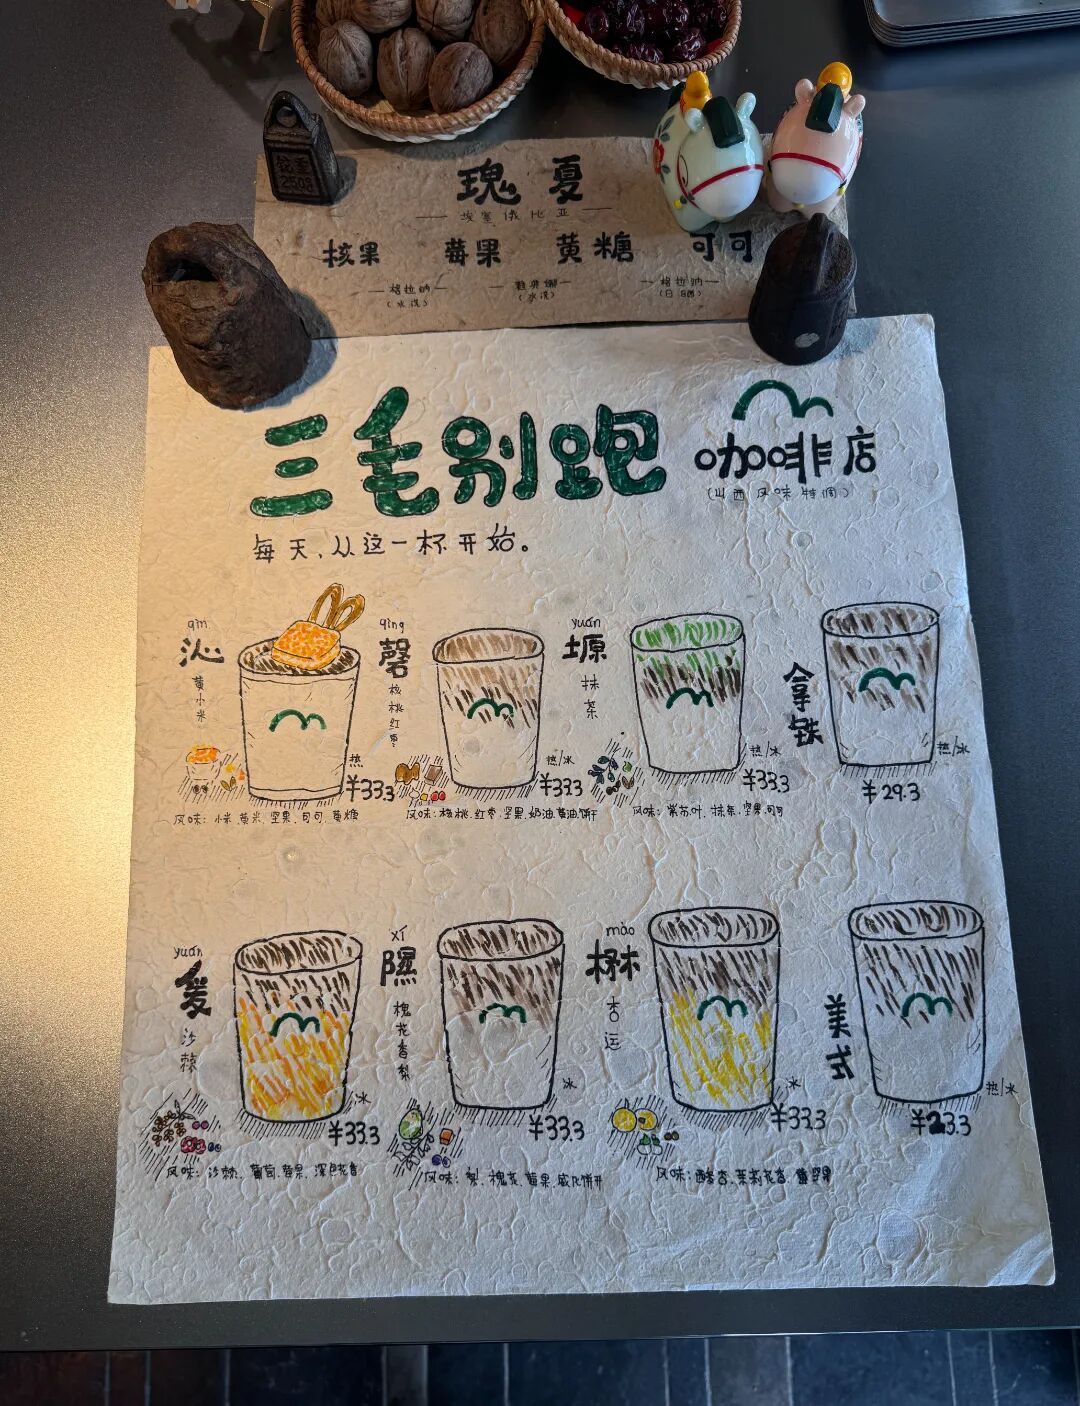 铭重
250g
瑰 夏
埃塞俄比亚
核果 莓果 黄糖 可可
格拉纳 格拉纳
(水洗) (水洗) (日晒)
三毛别跑 咖啡店
(山西风味特调)
每天,从这一杯开始。
qìn
沁
黄小米
热
¥33.3
风味:小米.黄米.坚果.可可.黄糖
qìng
磬
核桃红枣
热/冰
¥33.3
风味:核桃.红枣.坚果.奶油.黄油饼干
yuán
塬
抹茶
热/冰
¥33.3
风味:紫苏叶.抹茶.坚果.可可
拿铁
热/冰
¥29.3
yuán
爰
沙棘
冰
¥33.3
风味:沙棘.葡萄.莓果.深色花香
xí
隰
槐花香梨
冰
¥33.3
风味:梨.槐花.莓果.威化饼干
mào
楙
杏运
冰
¥33.3
美式
热/冰
¥23.3